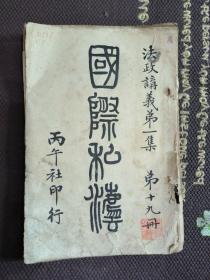 法政講義第一集 第十九冊
國際私法
丙午社印行